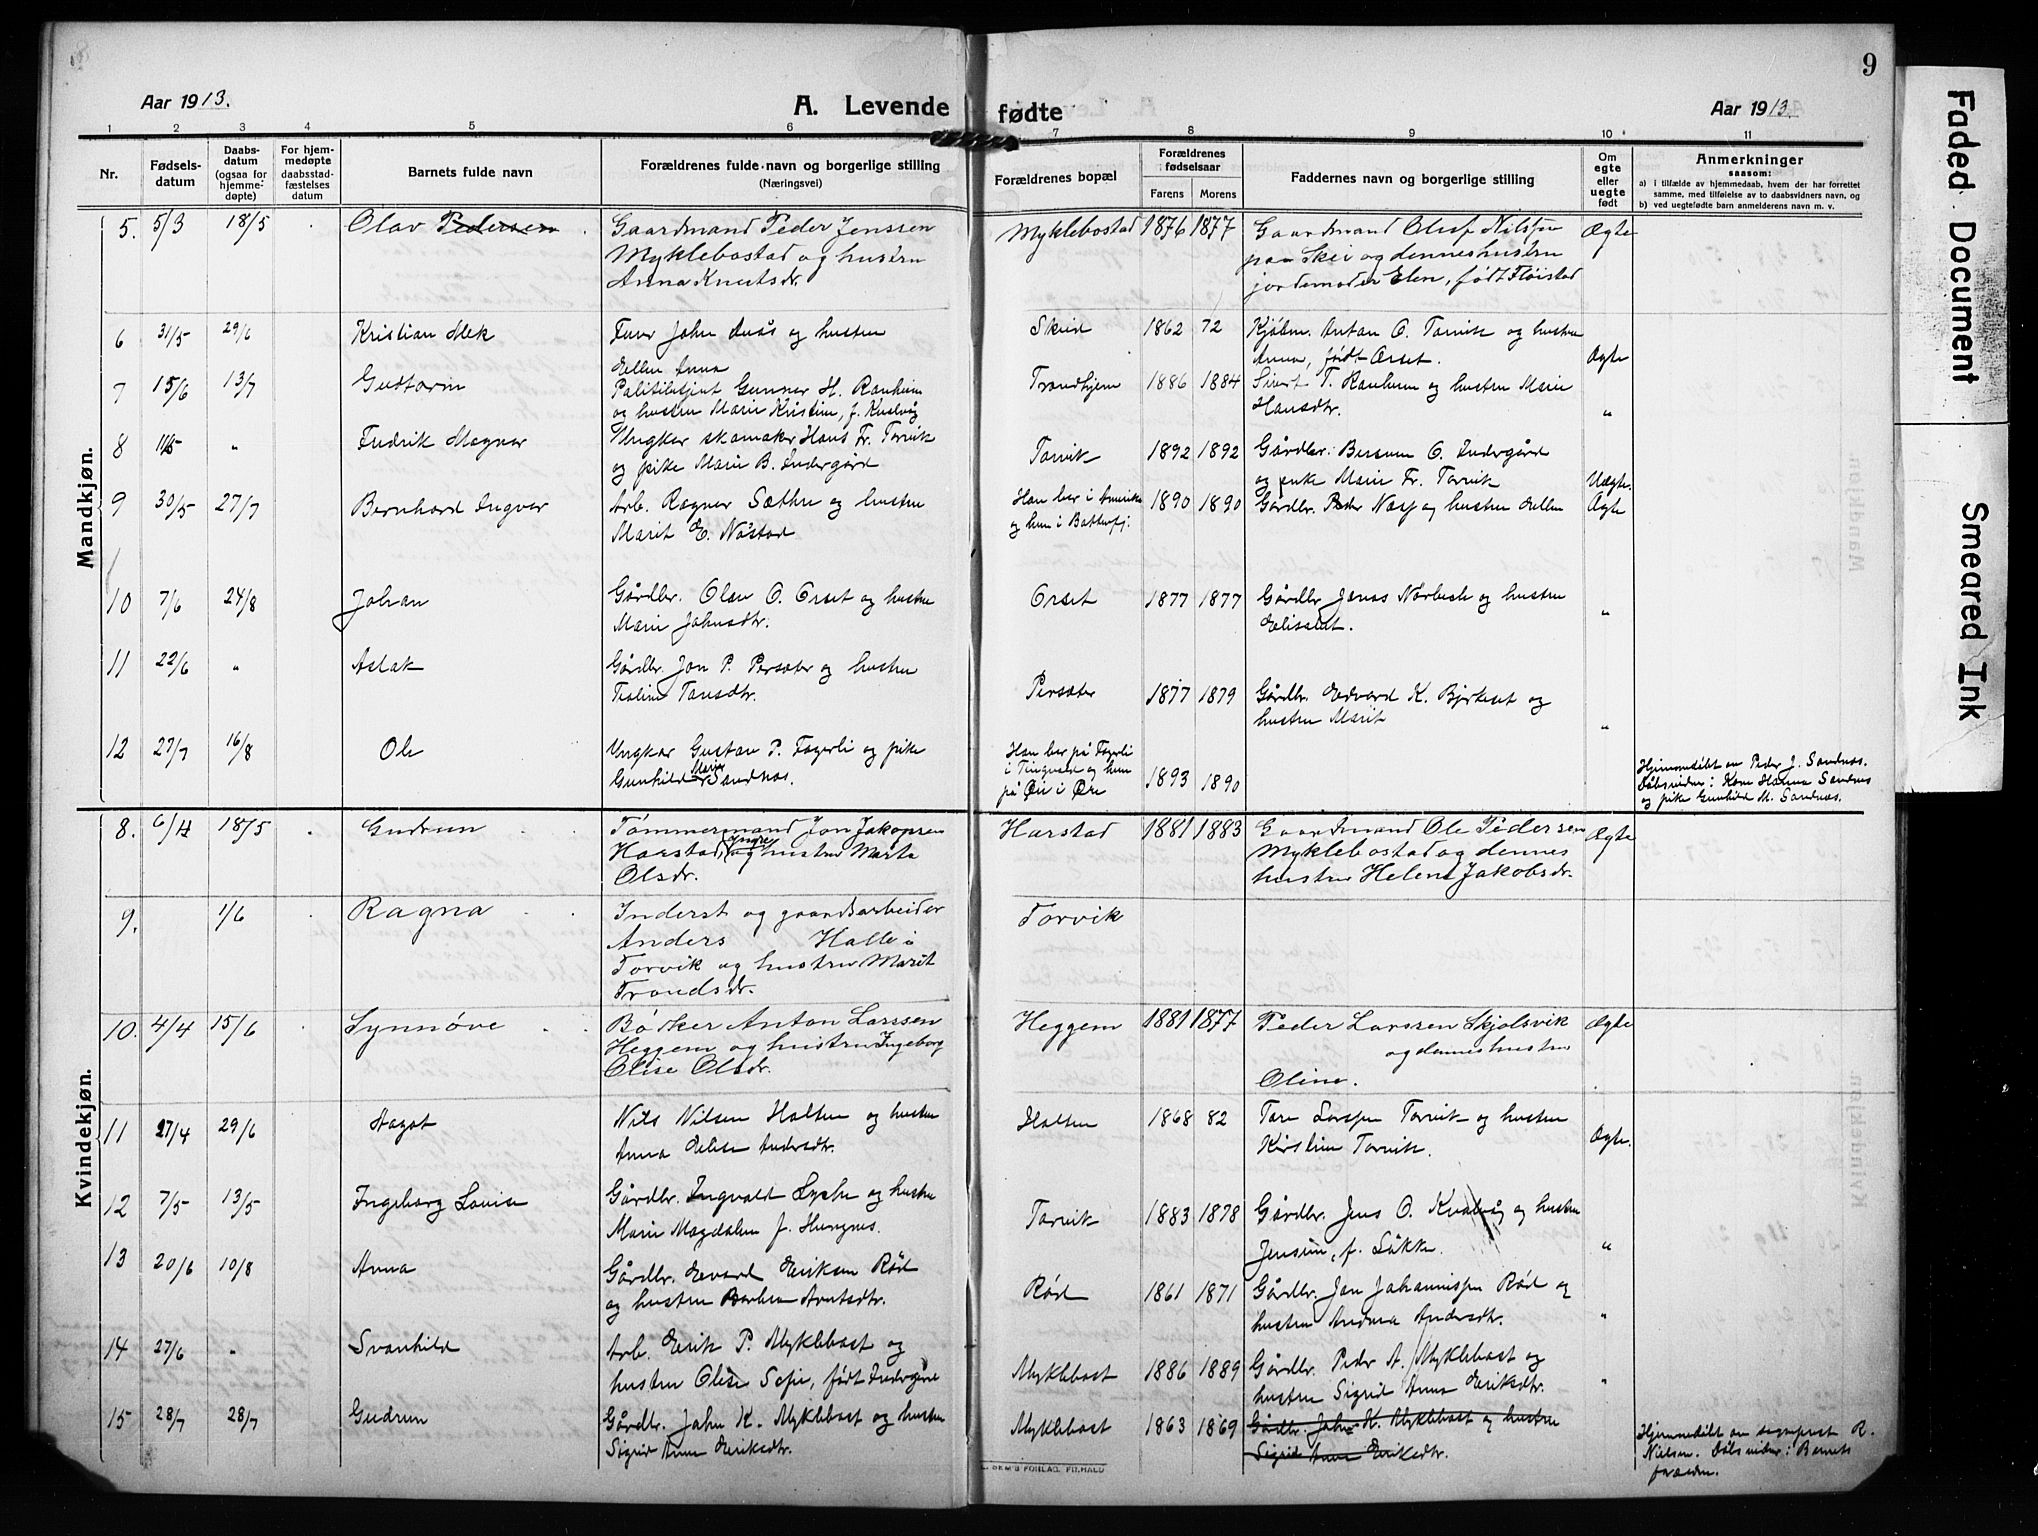 9
Aar 1913.
A. Levende fødte
Aar 1913.
1 2 3 4 5 6 7 8 9 10 11
Nr.
Fødsels-
datum
Daabs-
datum
(ogsaa for
hjemme-
døpte)
For hjem-
medøpte
daabsstad-
fæstelses
datum
Barnets fulde navn
Forældrenes fulde navn og borgerlige stilling
(Næringsvei)
Forældrenes bopæl
Forældrenes
fødselsaar
Farens Morens
Faddernes navn og borgerlige stilling
Om
egte
eller
uegte
født
Anmerkninger
saasom:
a) i tilfælde av hjemmedaab, hvem der har forrettet
samme, med tilføielse av to daabsvidners navn, og
b) ved uegtefødte barn anmelderens navn m. v.
Mandkjøn.
5. 5/3 18/5 Olav Pedersen Gaardmand Peder Jenssen Myklebostad 1876 1877 Gaardmand Olaf Nilssen Ægte
Myklebostad og hustru paa Skei og dennes hustru
Anna Knutsdr. jordemoder Elen, født Fløistad
6 31/5 29/6 Kristian Mek John og hustru Skeid 1862 72 Kjøbm. Anton O. Torvik og hustru
Ellen Anna Anna, født Orset. Ægte
7 15/6 13/7 Gustavin Politibetjent Gunnar H. Ranheim Trondhjem 1886 1884 Sivert T. Ranheim og hustru Marie
og hustru Marie Kristine, f. Hansdtr. "
8 " Fredrik Magnar Ungkar skomaker Hans Fr. Torvik Torvik 1892 1892 Gårdbr. O. Indergård
og pike Marie B. Indergård og pike Marie Fr. Torvik Uægte.
9 30/5 27/7 Bernhard Ingvar Arb. Ragnar Sæthre og hustru Han bor i Amerika 1890 1890 Gårdbr. Peder Næsp og hustru Ellen Ægte
Marit E. Nåstad og hun i Battnfj.
10 7/6 24/8 Johan Gårdbr. Olav O. Orset og hustru Orset 1877 1877 Gårdbr. Jonas Norbech og hustru
Marie Johnsdtr. Elissabet. "
11 22/6 " Aslak Gårdbr. Jon P. Persæter og hustru Persæter 1877 1879 Gårdbr. Edvard K. Bjerkeset og
Toresdtr. hustru Marit "
12 27/7 16/8 Ole Ungkar Gustav P. Fagerli og pike Han bor på Fagerli 1893 1890 Hjemmedøbt av Peder J. Sandnæs.
Gunhild Marie Sandnæs. i Tingvold og hun Døbsvidner: Kone Hanna Sandnæs
på Øie i Øre og pike Gunhild M. Sandnæs.
Kvindekjøn.
8. 6/4 18/5 Gudrun Tømmermand Jon Jakopsen Harstad 1881 1883 Gaardmand Ole Pedersen Ægte
Harstad, yngre og hustru Marta Myklebostad og dennes
Olsdr. hustru Helene Jakobsdr.
9. 1/6 Ragna Inderst og gaardsarbeider Torvik
Anders Halle i
Torvik og hustru Marit
Trondsdr.
10. 4/4 15/6 Synnøve Bødker Anton Larssen Heggem 1881 1877 Peder Larssen Skjølsvik Ægte
Heggem og hustru Ingeborg og dennes hustru
Olise Olsdr. Oline.
11 27/4 29/6 Aagot Nils Nilsen Holten og hustru Holten 1868 82 Tore Larssen Torvik og hustru
Anna Elise Andersdtr. Kirstine Torvik. Ægte.
12 7/5 13/5 Ingeborg Louise Gårdbr. Ingvald Lyche og hustru Torvik 1883 1878 Gårdbr. Jens O. Kvalvåg og hustru
Marie Magdalene f. Hungnes. Jensine, f. Løkke. "
13 20/6 10/8 Anna Gårdbr. Edvard Eriksen Rød Rød 1861 1871 Gårdbr. Jon Johannissen Rød og
og hustru Barbra Arntsdtr. hustru Andrea Andersdtr. "
14 27/6 " Svanhild Arb. Erik P. Myklebost og Myklebost 1886 1889 Gårdbr. Peder A. Myklebost og
hustru Olise Sofie, født Indergård hustru Sigrid Anna Eriksdtr. "
15 28/7 28/7 Gudrun Gårdbr. John K. Myklebost og hustru Myklebost 1863 1869 Gårdbr. John K. Myklebost og hustru Hjemmedøbt av sogneprest R.
Sigrid Anna Eriksdtr. Sigrid Anna Eriksdtr. Nielsen. Døbsvidner: Barnets
forældre.
Faded Document
Smeared Ink